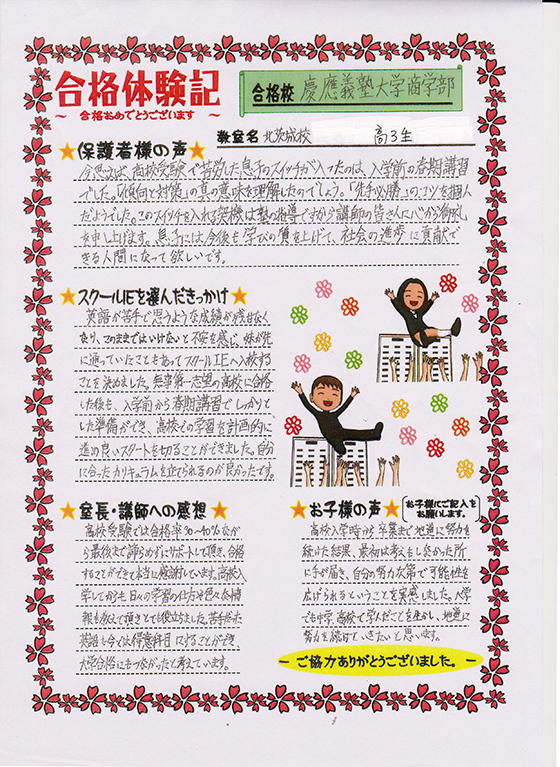 合格体験記
～ 合格おめでとうございます ～
合格校 慶應義塾大学商学部
教室名 北茨城校 高3年
★保護者様の声★
今思えば、高校受験で苦労した息子のスイッチが入ったのは、入学前の春期講習
でした。「傾向と対策」の真の意味を理解したのでしょう。「先手必勝」のコツを掴ん
だようでした。このスイッチを入れる契機は塾の指導ですから講師の皆さんに心から御礼
を申し上げます。息子には今後も学びの質を上げて、社会の進歩に貢献で
きる人間になって欲しいです。
★スクールIEを選んだきっかけ★
英語が苦手で思うような成績が残せなく
なり、このままではいけないと不安を感じ、妹が先
に通っていたこともあってスクールIEへ入校する
ことを決めました。無事第一志望の高校に合格
した後も、入学前から春期講習でしっかりと
した準備ができ、高校での学習を計画的に
進め良いスタートを切ることができました。自分
に合ったカリキュラムを立てられるのが良かったです。
★室長・講師への感想★
高校受験では合格率30～40%なが
ら最後まで諦めずにサポートして頂き、合格
することができて本当に感謝しています。高校入
学してからも日々の学習の仕方や色々な情
報も教えて頂きとても役立ちました。苦手だった
英語も今では得意科目にすることができ、
大学合格にもつながったと考えています。
★お子様の声★
お子様にご記入を
お願いします。
高校入学時から卒業まで地道に努力を
続けた結果、最初は考えもしなかった所
に手が届き、自分の努力次第で可能性を
広げられるということを実感しました。大学
でも中学、高校で学んだことを生かし、地道に
努力を続けていきたいと思います。
－ ご協力ありがとうございました。 －